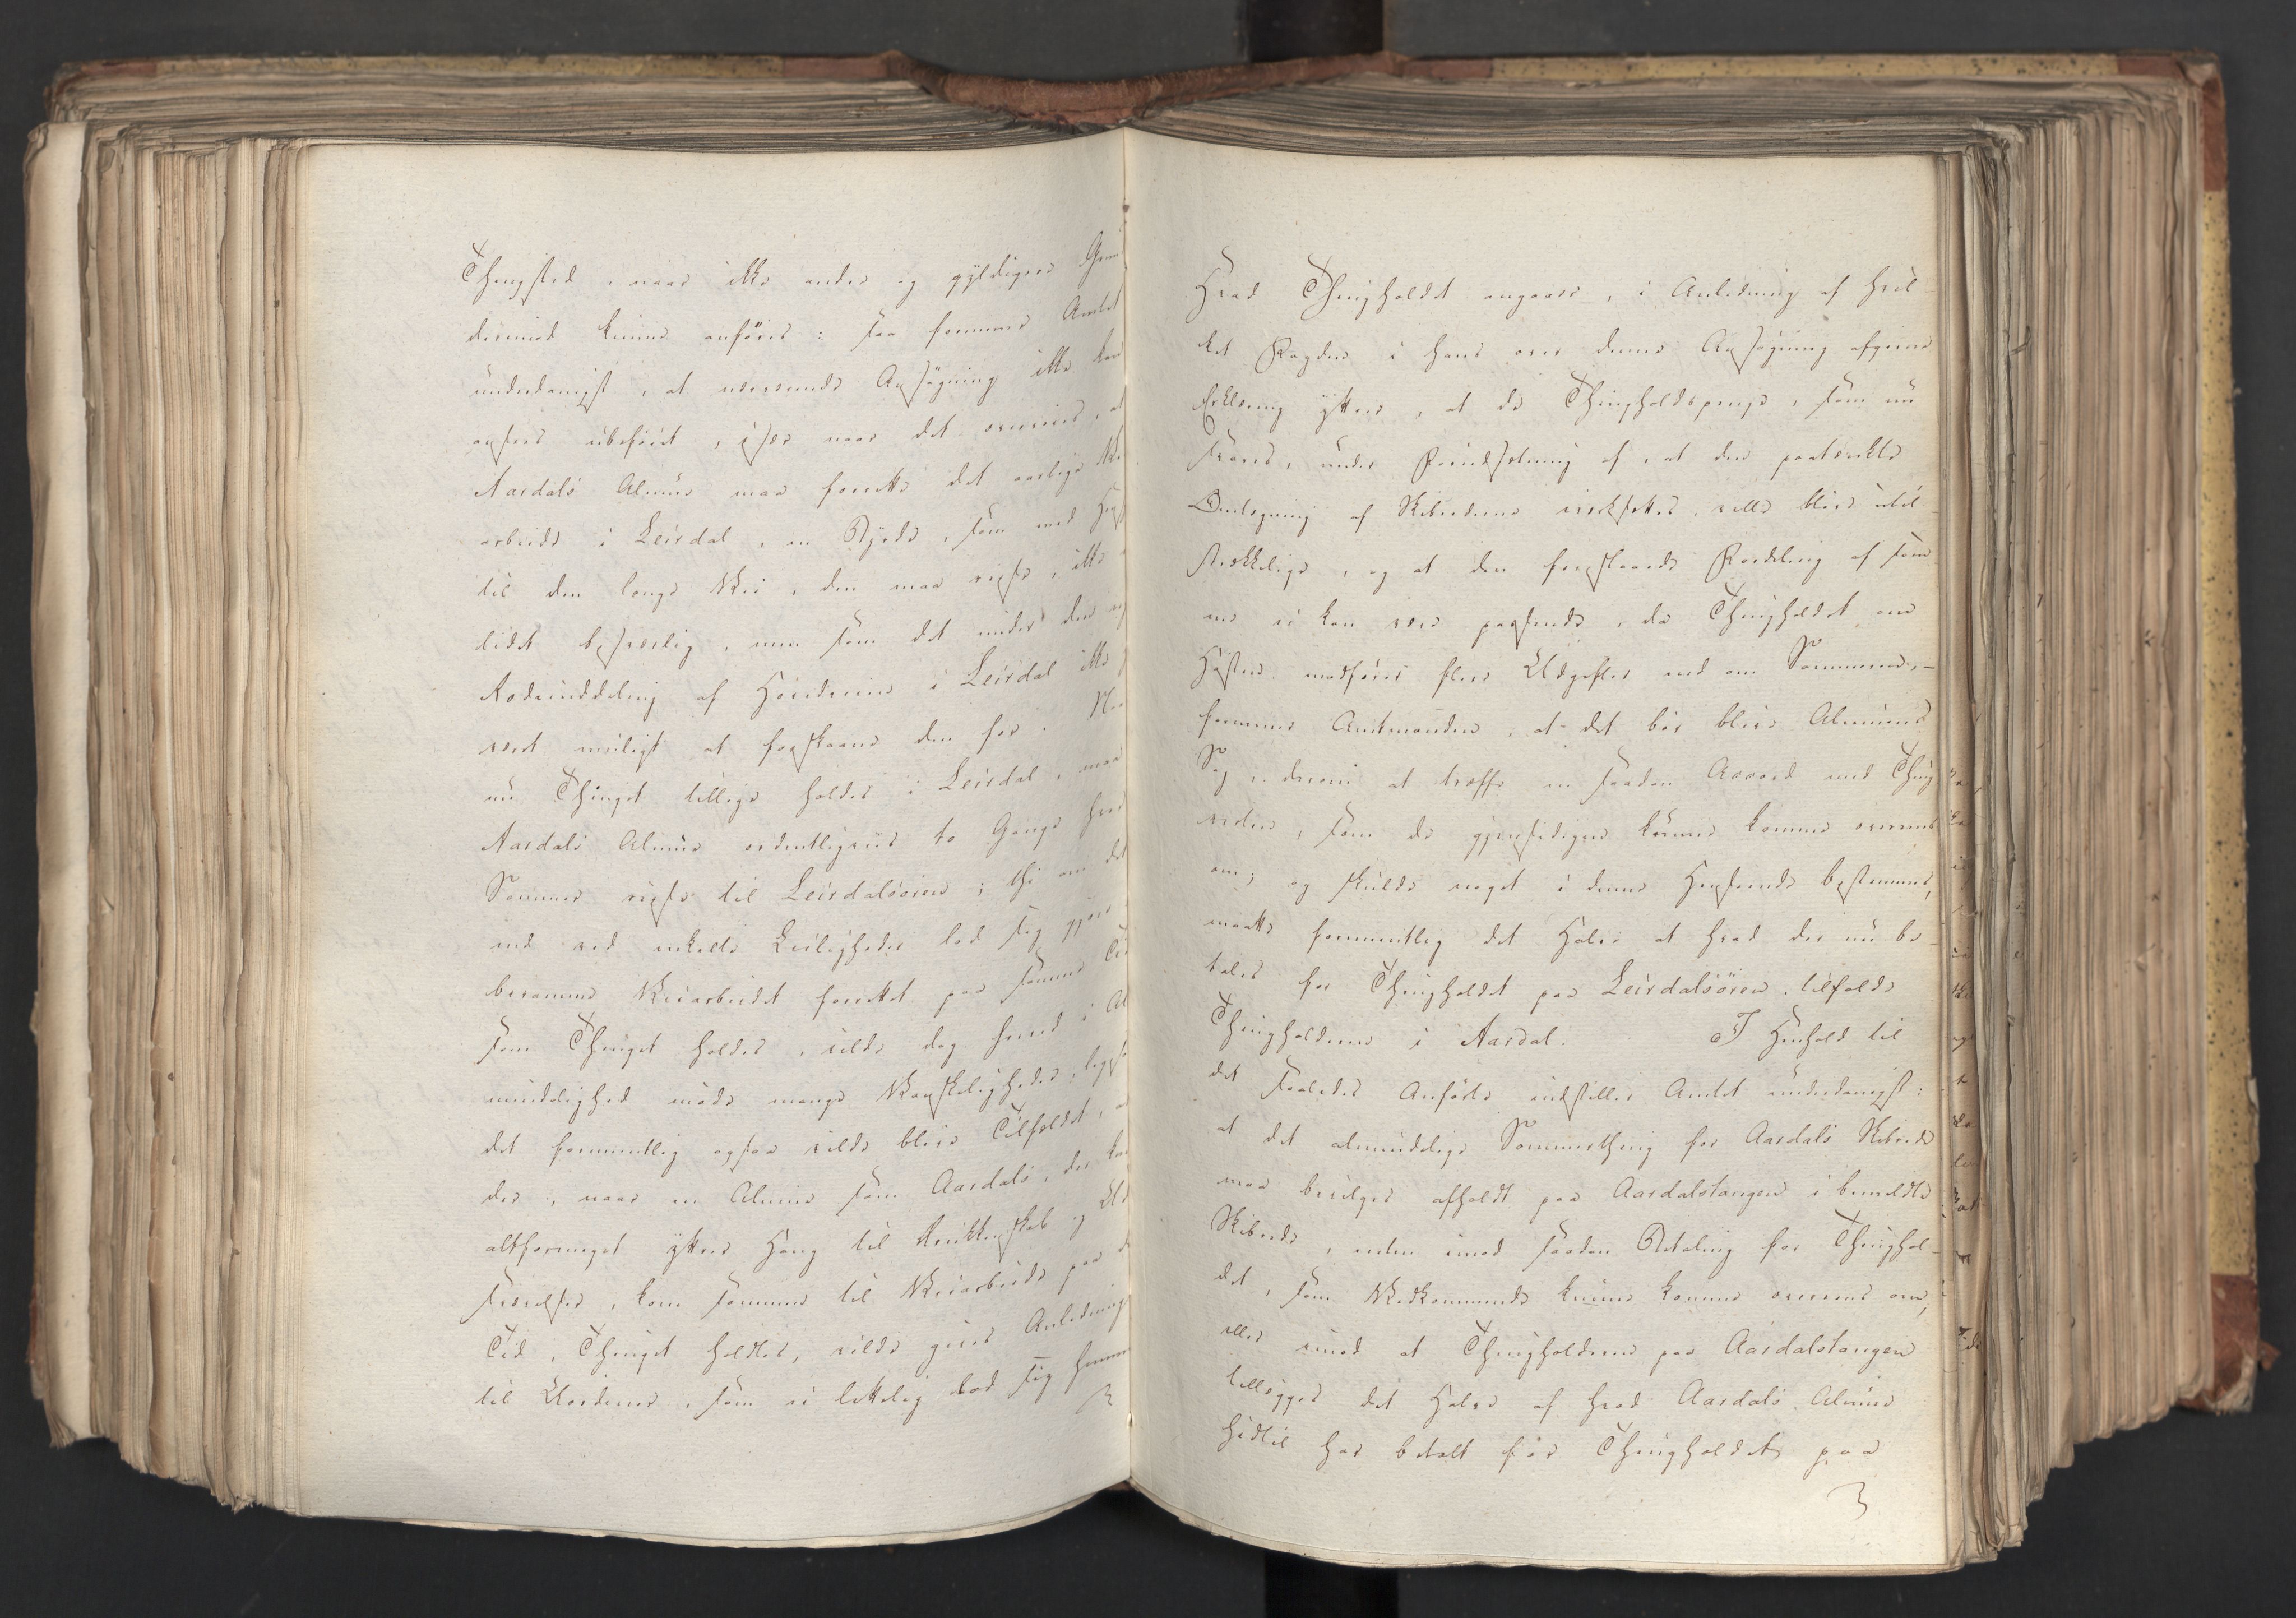 Thingsted, naar ikke andre og gyldigere Grun
derimod kunne anføres: saa formener Amtet
underdanigst, at nærværende Ansøgning ikke kan
ansees ubeføiet, især naar det overveies, at
Aardals Almue maa forrette det aarlige Vei
arbeide i Leirdal, en Bygde, som med Hens
til den lange Vei, den maa reise, ikke
lidet besværlig, men som det under den ny
Rodeinddeling af Hovedveien i Leirdal ikke
været muligt at forskaane den for. Naar
nu Thinget tillige holdes i Leirdal, maa
Aardals Almue ordentligviis to Gange hver
Sommer reise til Leirdalsøren; thi om det
end ved enkelte Leiligheder lod sig gjøre
beramme Veiarbeidet forrettet paa samme Tid
som Thinget holdes, vilde dog herved i Al
mindelighed møde mange Vanskeligheder, lige
det formentlig ogsaa vilde blive Tilfældet, at
der, naar en Almue som Aardals, der
altformeget yttrer Hang til Drukkenskab og
Sværelser, kom sammen til Veiarbeide paa d
Tid, Thinget holdtes, vilde gives Anledning
til Uordener, som ei letteligt lod sig hemme
Hvad Thingholdet angaaer, i Anledning af hvil-
ket Fogden i hans over denne Ansøgning afgivne
Erklæring yttrer, at de Thingholdspenge, som nu
svares, under Forudsætning af, at den paatænkte
Omlægning af Skibrederne iværksættes, ville blive util-
strækkelige, og at den foreslaaede Fordeling af sam-
me ei kan være passende, da Thingholdet om
Høsten medfører flere Udgifter end om Sommeren, -
formener Amtmanden, at det bør blive Almuens
Sag derom at træffe en saadan Accord med Thing-
verten, som de gjensidigen kunne komme overeens
om; og skulde noget i denne Henseende bestemmes,
maatte formentlig det Halve af hvad der nu be-
tales for Thingholdet paa Leirdalsøren, tilfalde
Thingholderne i Aardal. I Henhold til
det saaledes Anførte indstiller Amtet underdanigst:
at det almindelige Sommerthing for Aardals Skibrede
maa bevilges afholdt paa Aardalstangen i bemeldte
Skibrede, enten imod saadan Betaling for Thinghol-
det, som Vedkommende kunne komme overeens om,
eller imod at Thingholderne paa Aardalstangen
tillægges det Halve af hvad Aardals Almue
hidtil har betalt for Thingholdet paa